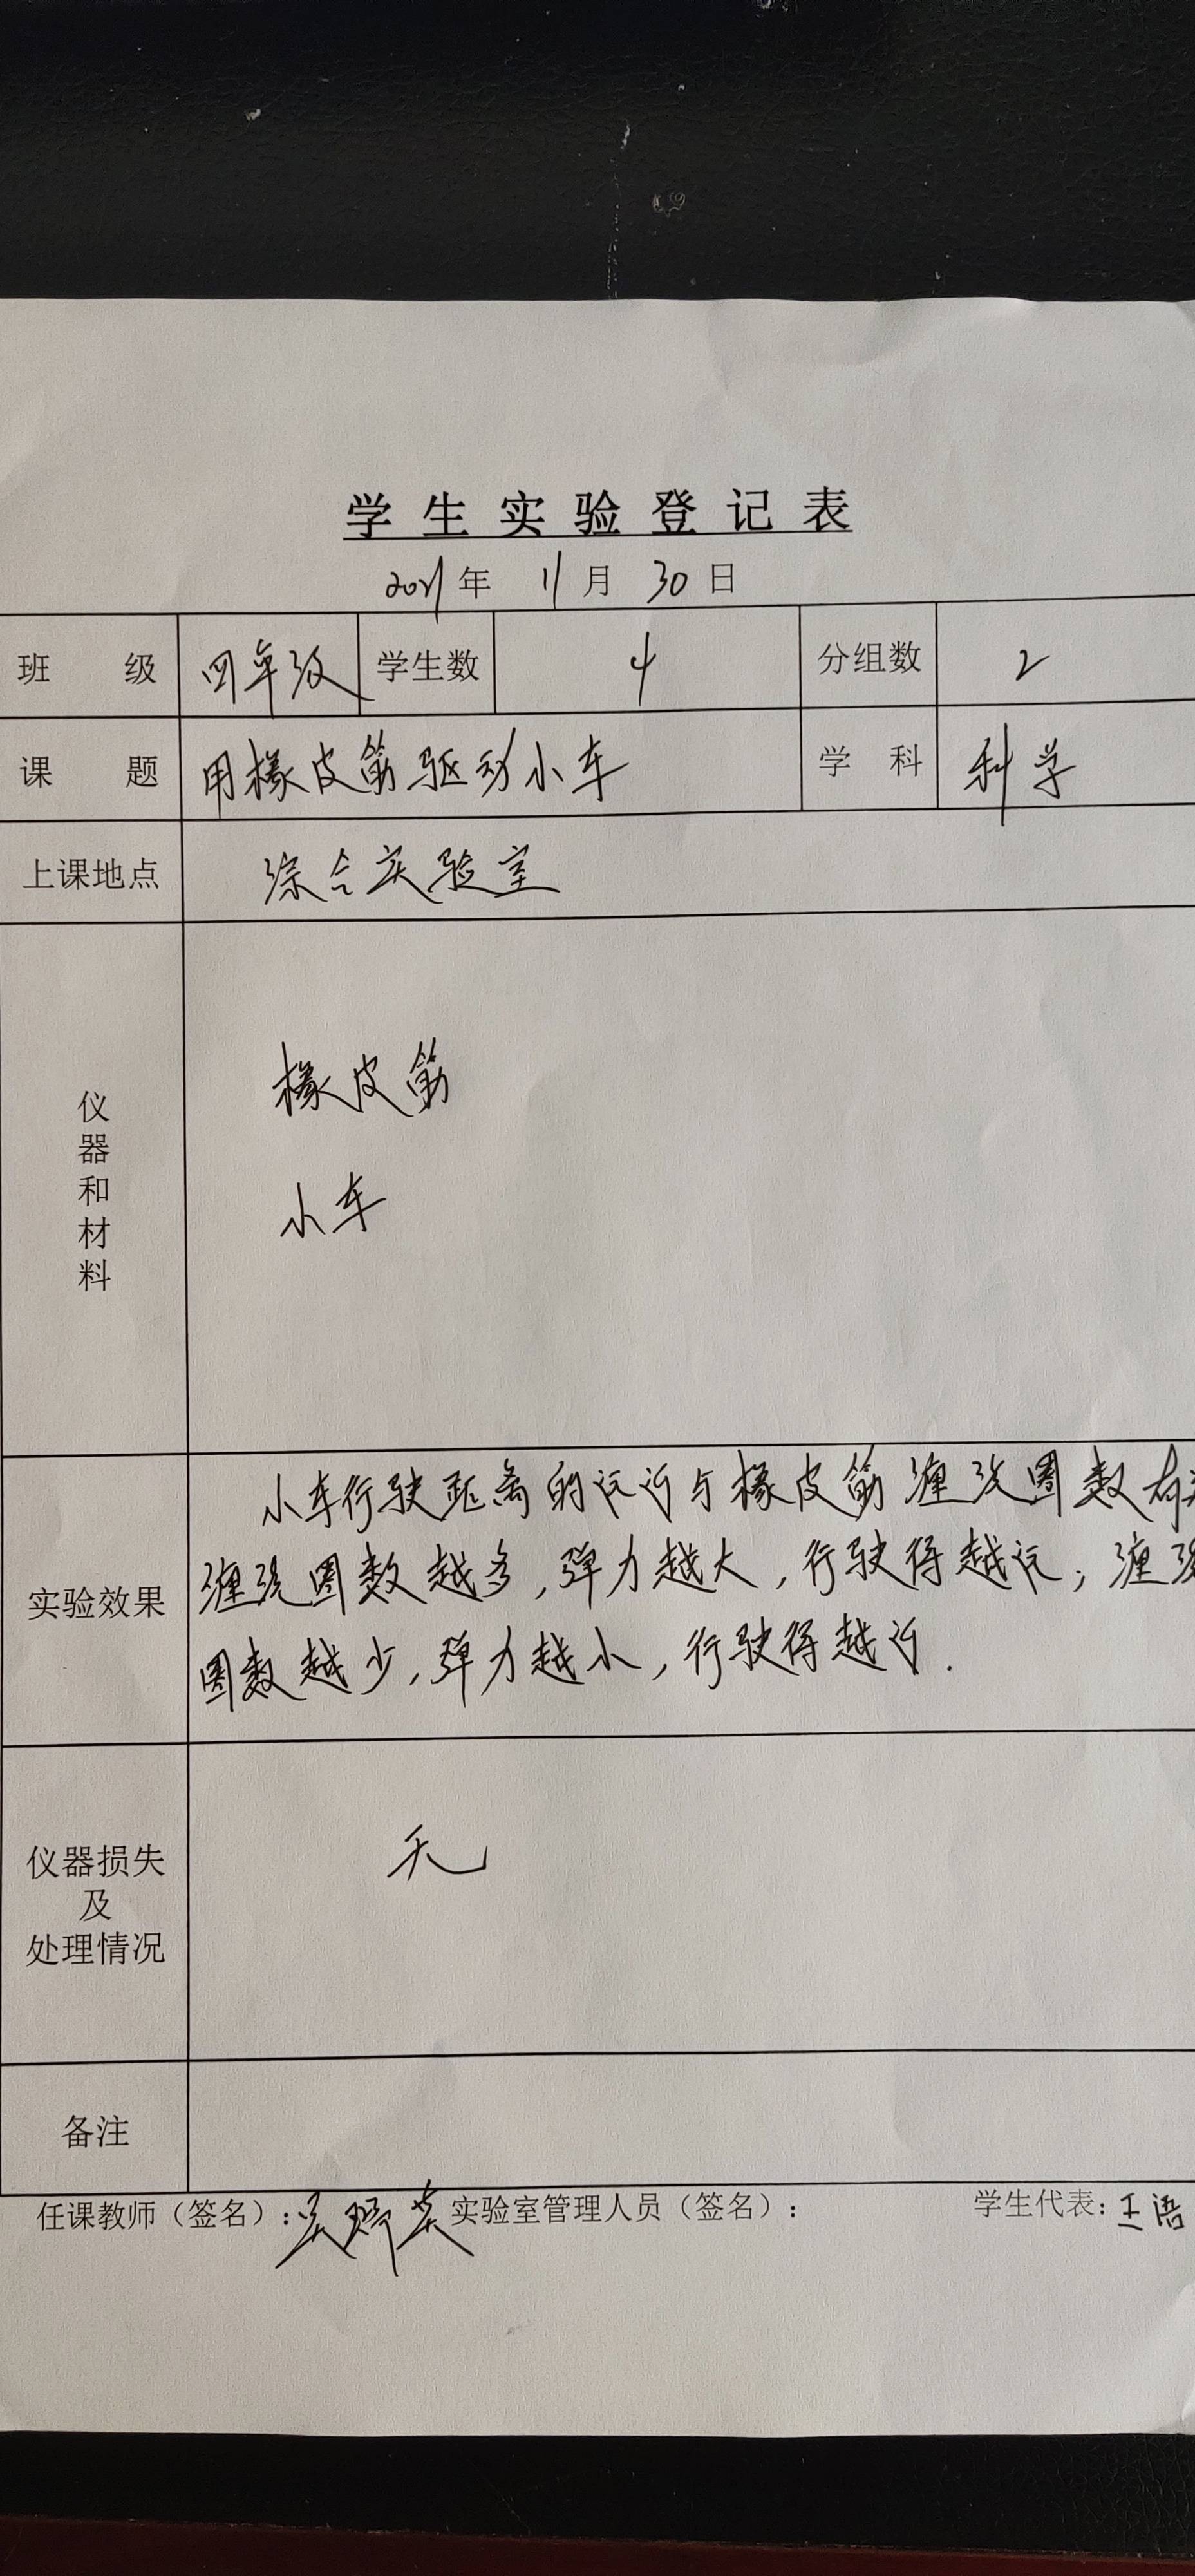 学生实验登记表
2021年 11月 30日
班 级 四年级 学生数 4 分组数 2
课 题 用橡皮筋驱动小车 学 科 科学
上课地点 综合实验室
仪器和材料
橡皮筋
小车
实验效果
小车行驶距离的远近与橡皮筋缠绕圈数有关
缠绕圈数越多,弹力越大,行驶得越远;缠绕
圈数越少,弹力越小,行驶得越近.
仪器损失
及
处理情况
无
备注
任课教师(签名): 实验室管理人员(签名): 学生代表:王语